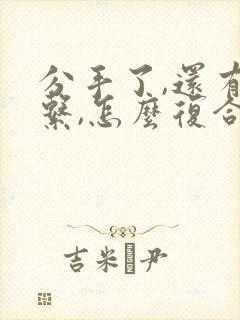 分手了,還有
繫,怎麼復合
吉米 尹